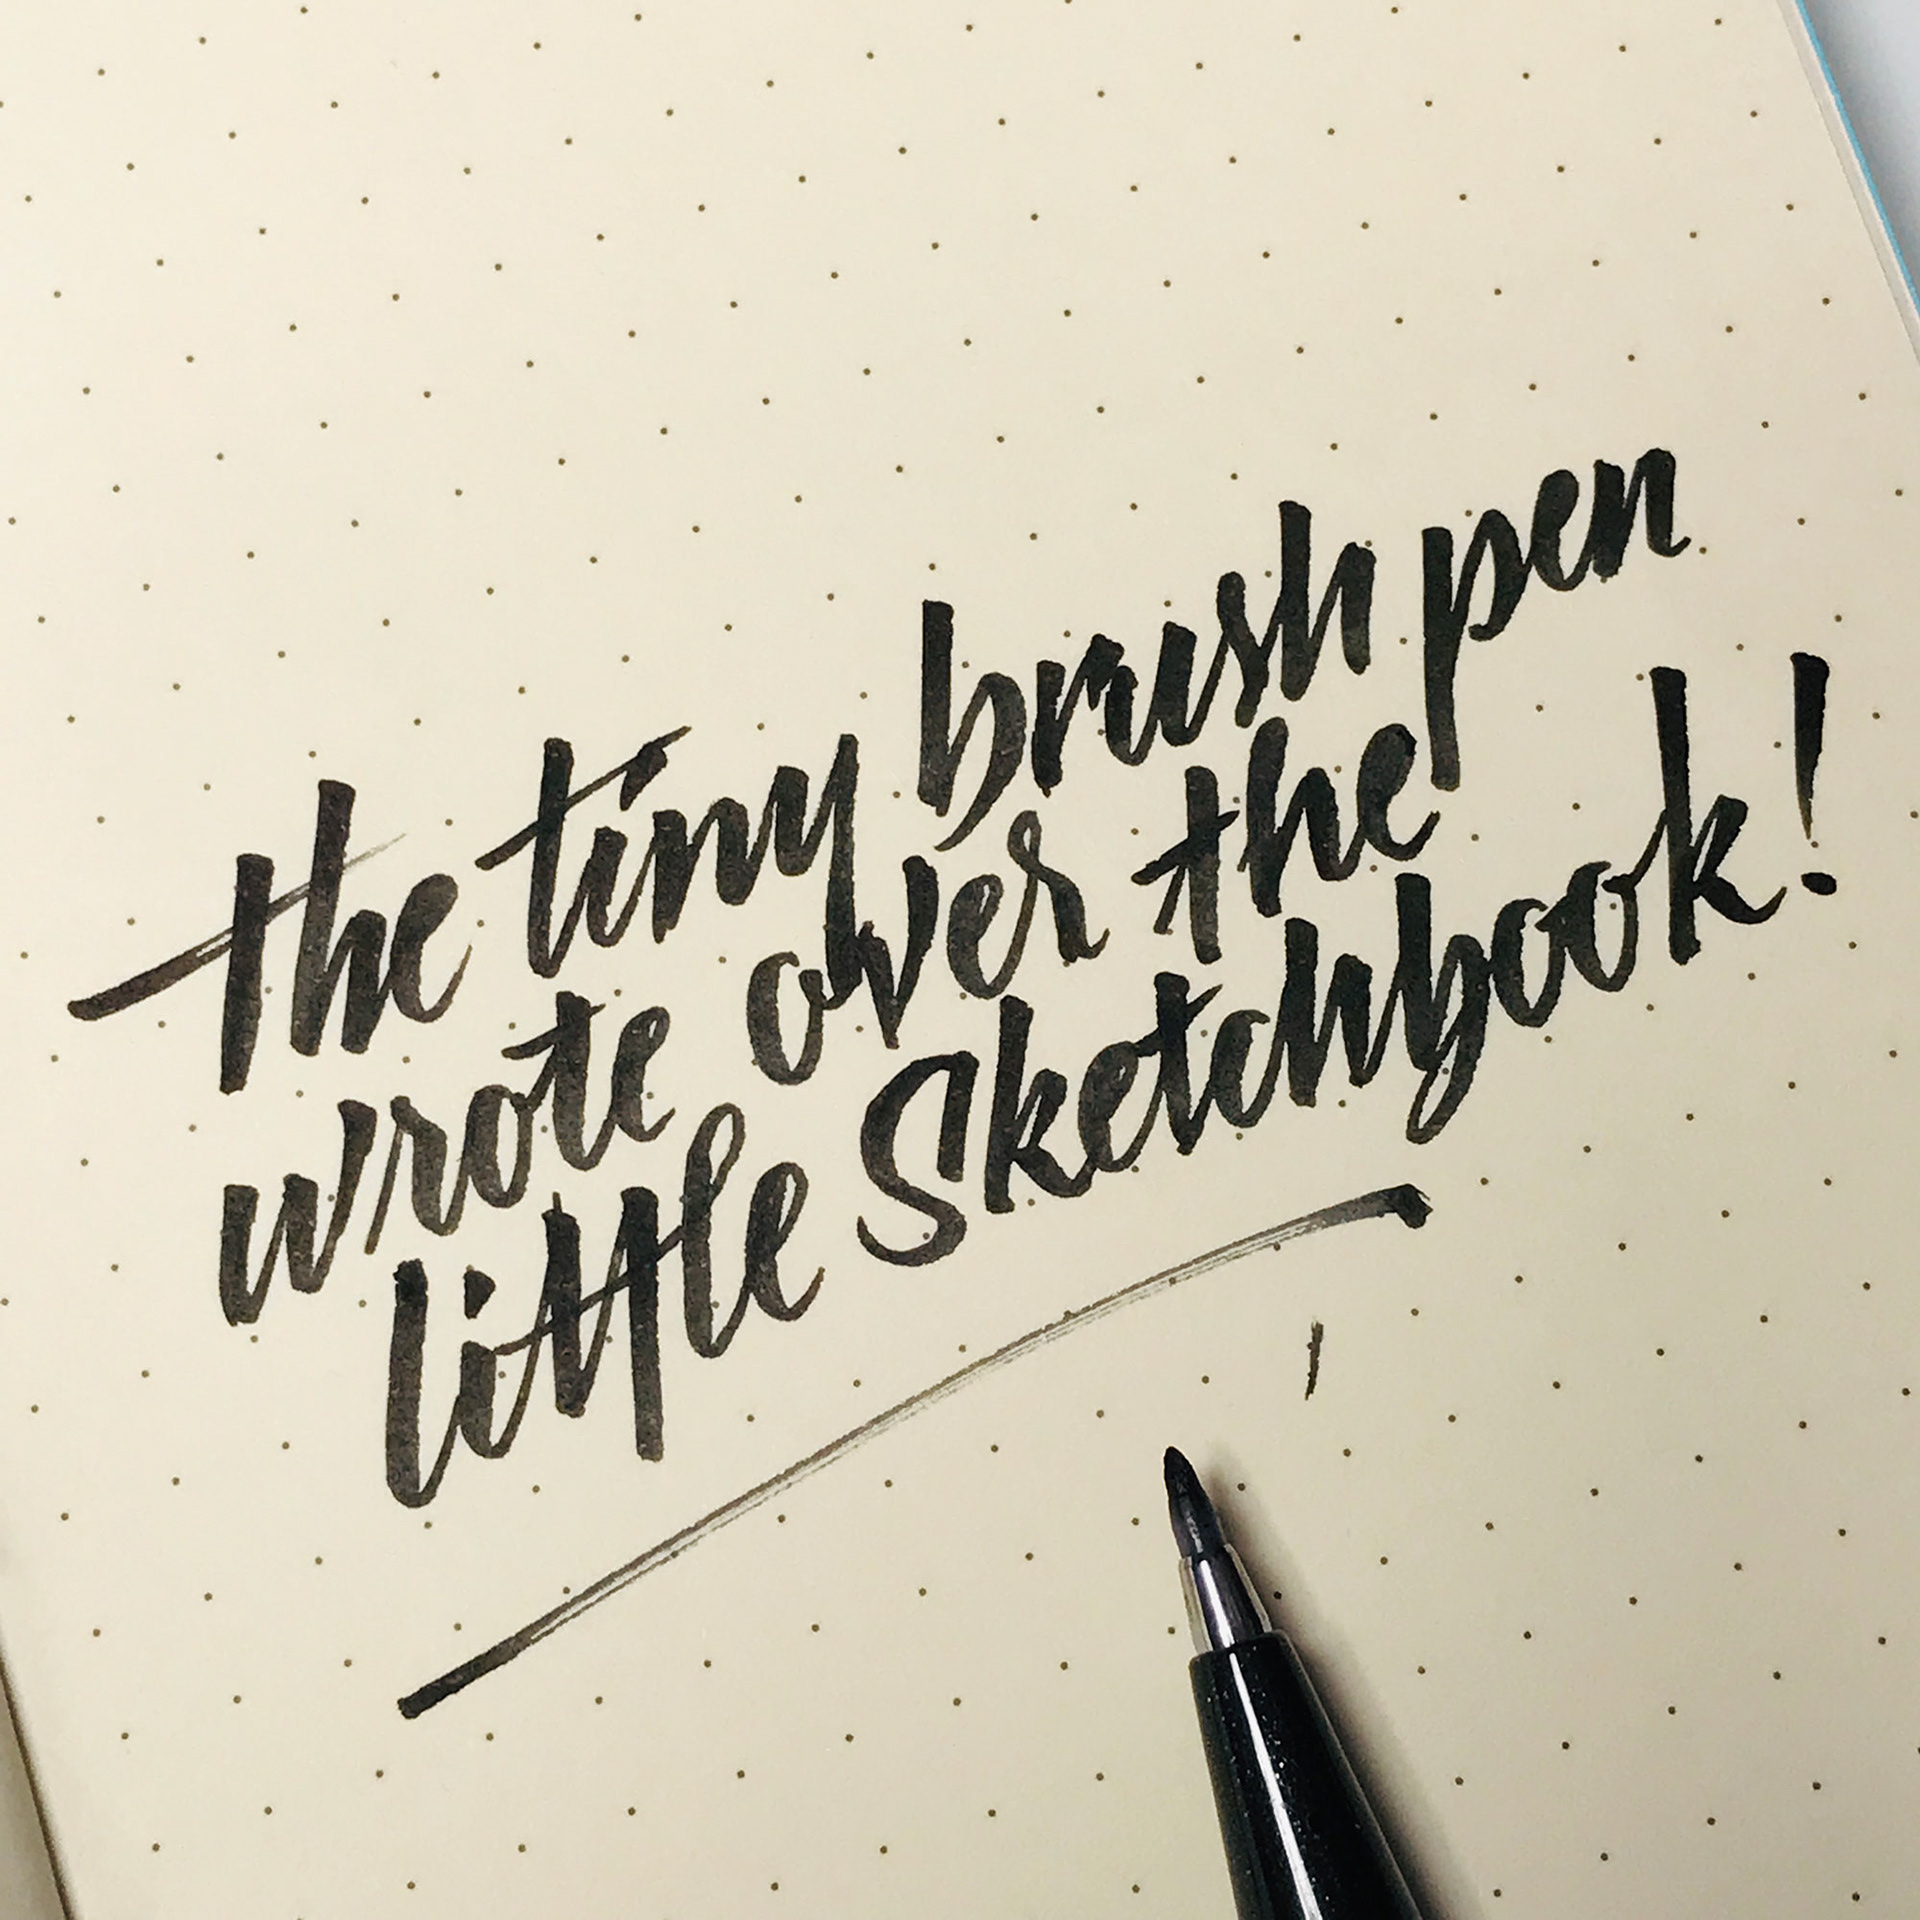 the tiny brush pen
wrote over the
little Sketchbook!